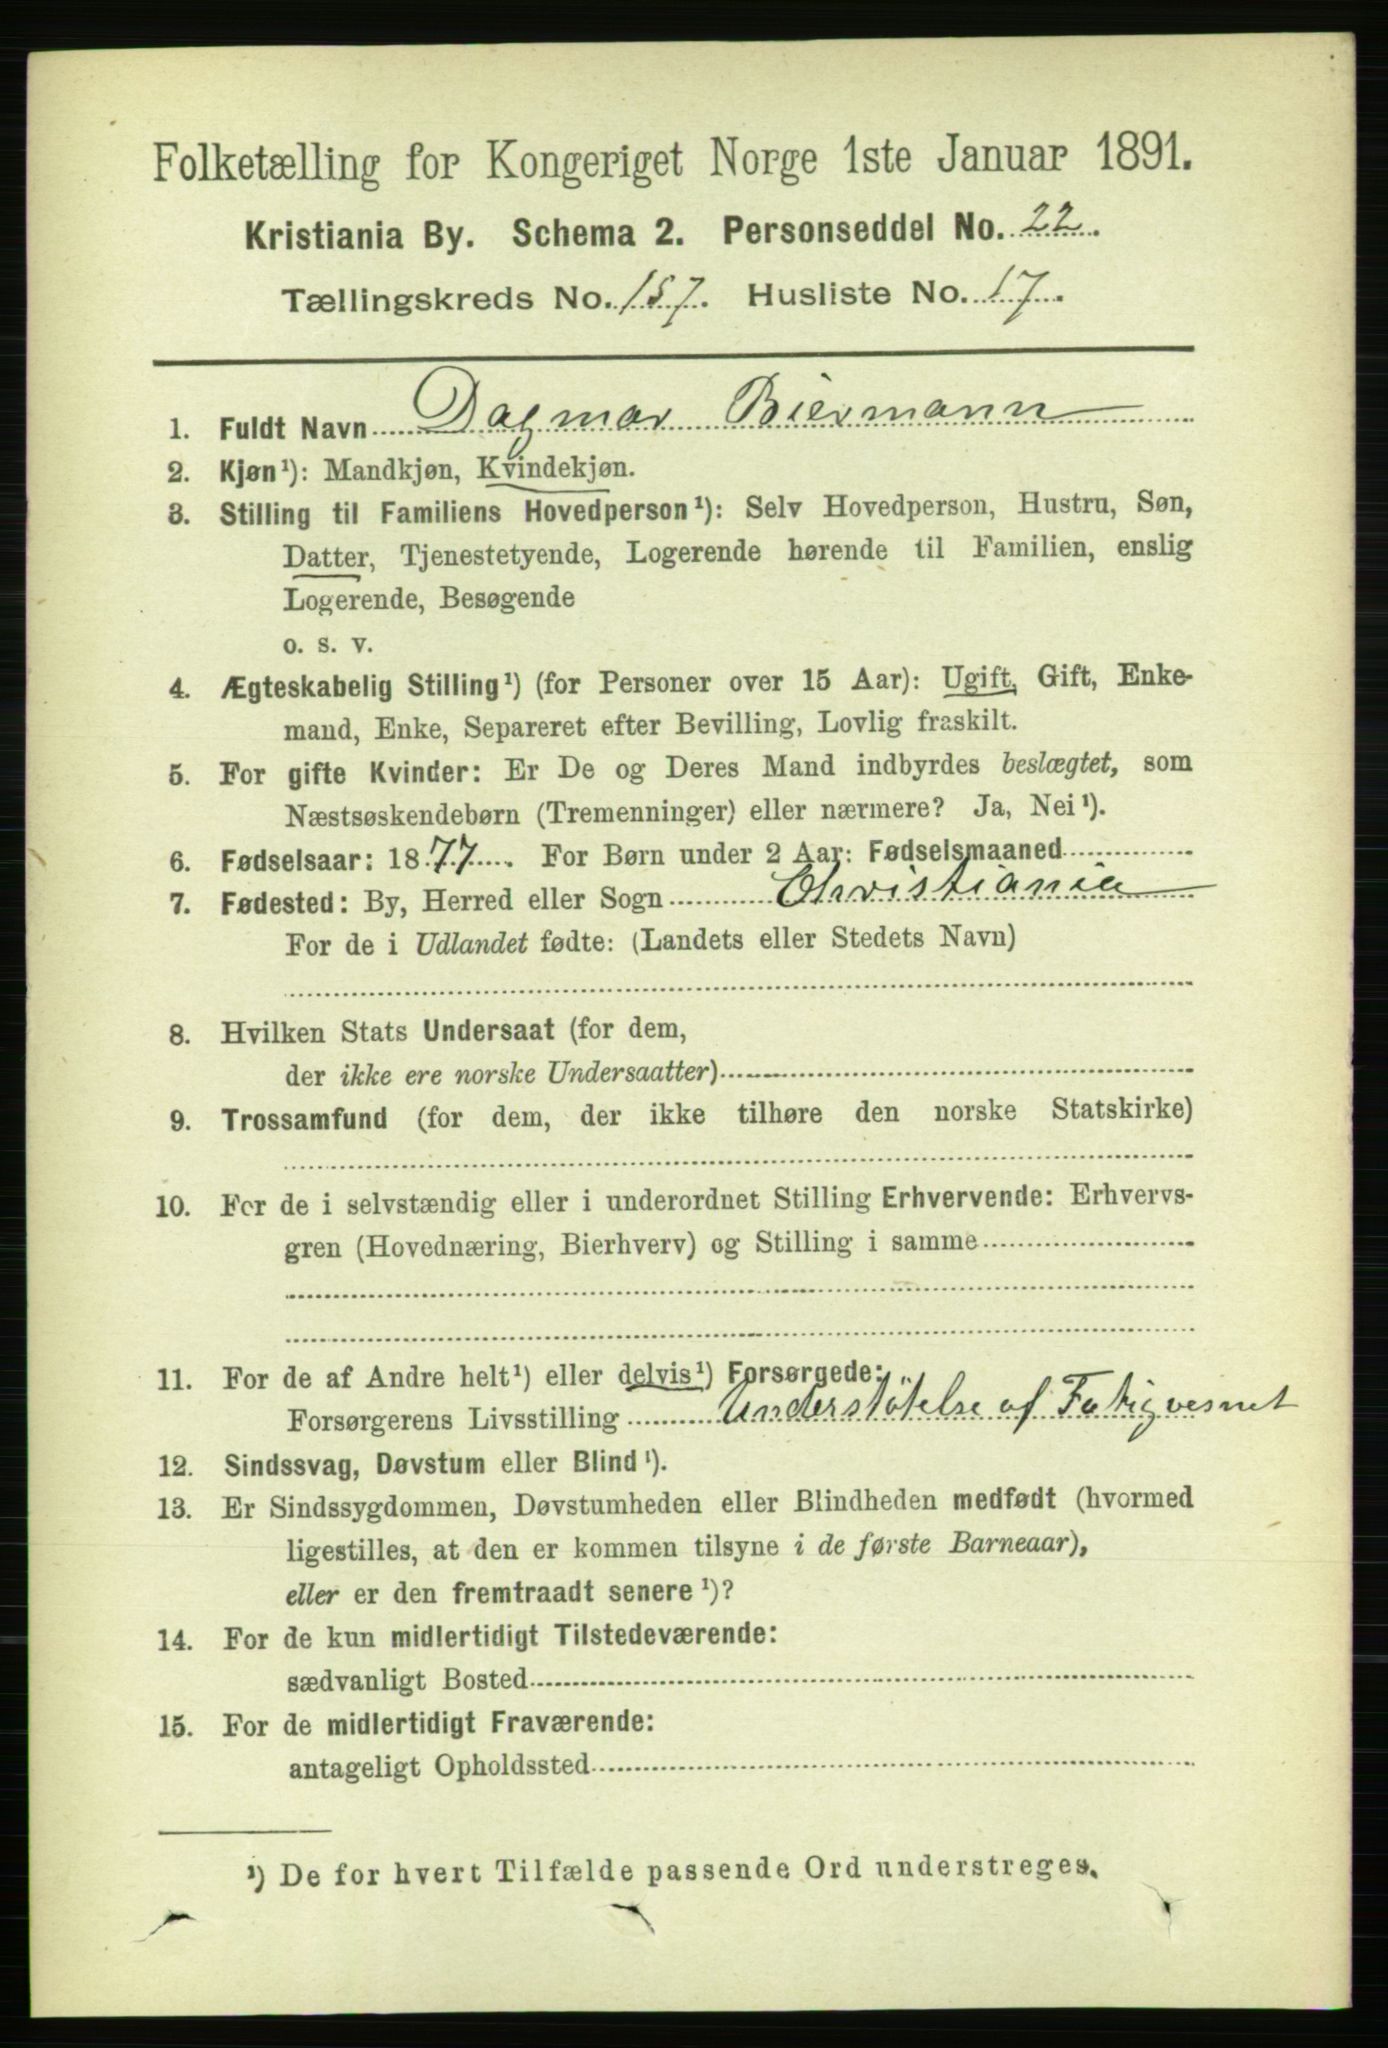 Folketælling for Kongeriget Norge 1ste Januar 1891.
Kristiania By. Schema 2. Personseddel No. 22.
Tællingskreds No. 157. Husliste No. 17.
1. Fuldt Navn Dagmar Biermann
2. Kjøn¹): Mandkjøn, Kvindekjøn.
3. Stilling til Familiens Hovedperson¹): Selv Hovedperson, Hustru, Søn,
Datter, Tjenestetyende, Logerende hørende til Familien, enslig
Logerende, Besøgende
o. s. v.
4. Ægteskabelig Stilling¹) (for Personer over 15 Aar): Ugift, Gift, Enke-
mand, Enke, Separeret efter Bevilling, Lovlig fraskilt.
5. For gifte Kvinder: Er De og Deres Mand indbyrdes beslægtet, som
Næstsøskendebørn (Tremenninger) eller nærmere? Ja, Nei¹).
6. Fødselsaar: 1877. For Børn under 2 Aar: Fødselsmaaned
7. Fødested: By, Herred eller Sogn Christiania
For de i Udlandet fødte: (Landets eller Stedets Navn)
8. Hvilken Stats Undersaat (for dem,
der ikke ere norske Undersaatter)
9. Trossamfund (for dem, der ikke tilhøre den norske Statskirke)
10. For de i selvstændig eller i underordnet Stilling Erhvervende: Erhvervs-
gren (Hovednæring, Bierhverv) og Stilling i samme
11. For de af Andre helt¹) eller delvis¹) Forsørgede:
Forsørgerens Livsstilling Understøtelse af Fatigvesnet
12. Sindssvag, Døvstum eller Blind¹).
13. Er Sindssygdommen, Døvstumheden eller Blindheden medfødt (hvormed
ligestilles, at den er kommen tilsyne i de første Barneaar),
eller er den fremtraadt senere¹)?
14. For de kun midlertidigt Tilstedeværende:
sædvanligt Bosted
15. For de midlertidigt Fraværende:
antageligt Opholdssted
¹) De for hvert Tilfælde passende Ord understreges.